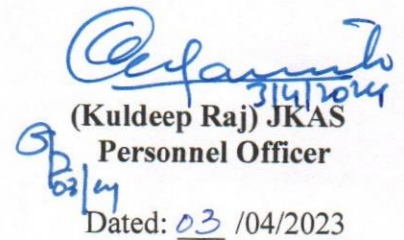 3/4/2024
(Kuldeep Raj) JKAS
Personnel Officer
03/04
Dated: 03 /04/2023